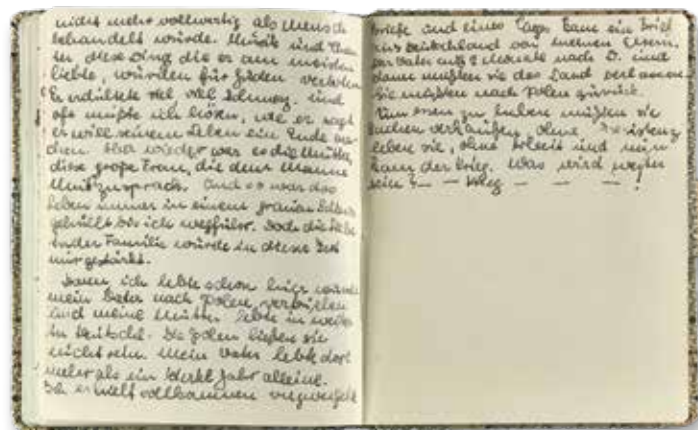 nicht mehr vollwertig als Mensch
behandelt wurde. Musik und Thea-
ter, diese Ding die er am meisten
liebte, wurden für Juden verboten.
Er erduldete viel Schmerz. und
oft mußte ich hören, wie er sagt
er will seinem Leben ein Ende ma-
chen. Aber wieder war es die Mutter,
diese große Frau, die dem Manne
Mut zusprach. Und so war das
Leben immer in einem grauen
gehüllt bis ich wegfuhr. Doch die Liebe
in der Familie wurde in dieser Zeit
nur gestärkt.
Dann ich lebte schon hier wurde
mein Vater nach Polen
und meine Mutter lebte
in Deutschl. Die Polen ließen sie
nicht rein. Mein Vater lebte dort
mehr als ein Jahr alleine.
Ich erhielt vollkommen verzweifelte
Briefe und eines Tages kam ein Brief
aus Deutschland von meinen Eltern,
der Vater auf 2 Monate nach D. und
dann mußten sie das Land verlassen.
Sie mußten nach Polen zurück.
Um Essen zu haben mußten sie
Sachen verkaufen, ohne Existenz
leben sie, ohne Arbeit und nun
kam der Krieg. Was wird weiter
sein? — — Krieg — — — !